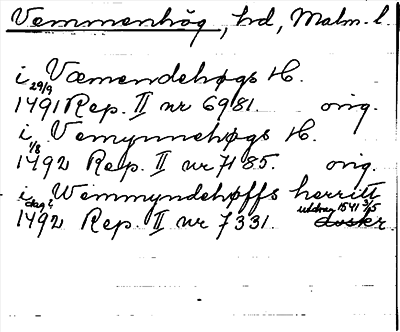 Vemmenhög, hd, Malm. l.
i Væmendehøgs H.
29/9
1491 Rep. II nr 6981. orig.
i Vemynnehøgs H.
1/8
1492 Rep. II nr 7185. orig.
i Wemmyndehøffs herritt
dag?
utdrag 1541 3/5
1492 Rep. II nr 7331. avskr